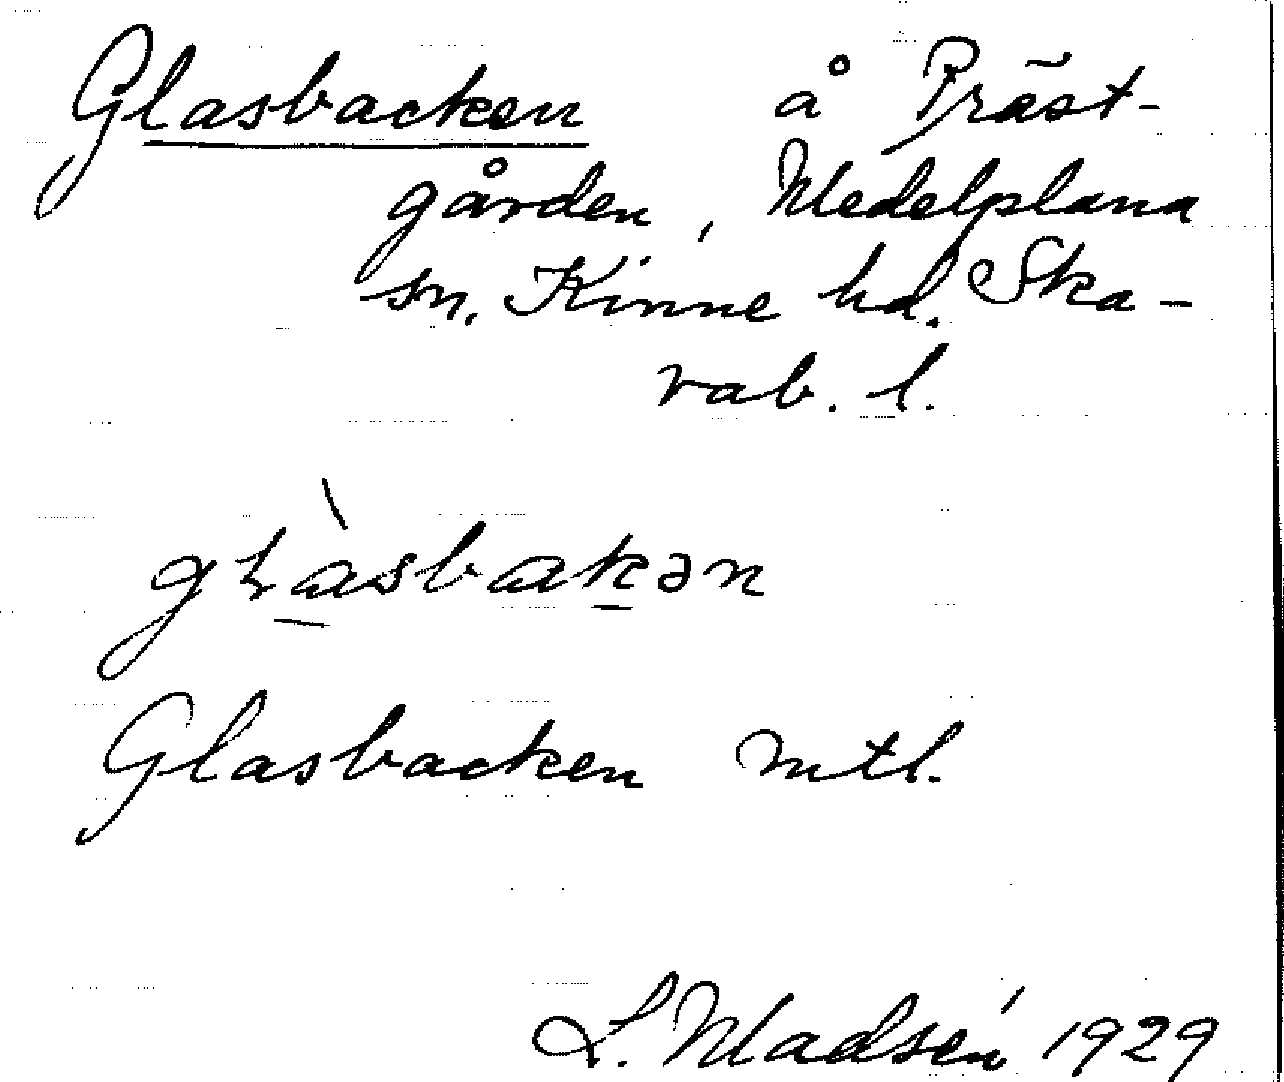 Glasbacken å Präst-
gården, Medelplana
sn, Kinne hd. Ska-
rab. l.
gɫàsbakən
Glasbacken mtl.
L. Madsén 1929